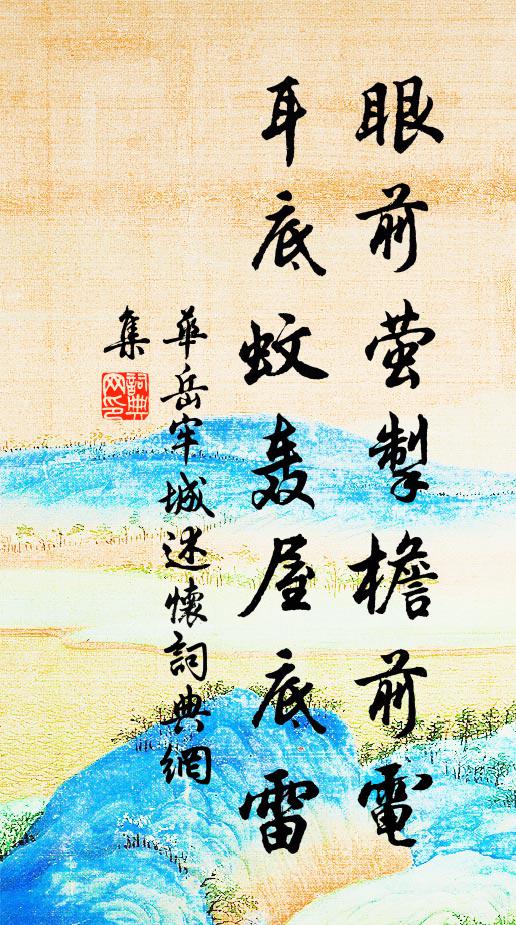 眼前萤掣檐前電
耳底蚊轰屋底雷
華岳牢城述懷詞典網
集
詞典
网印